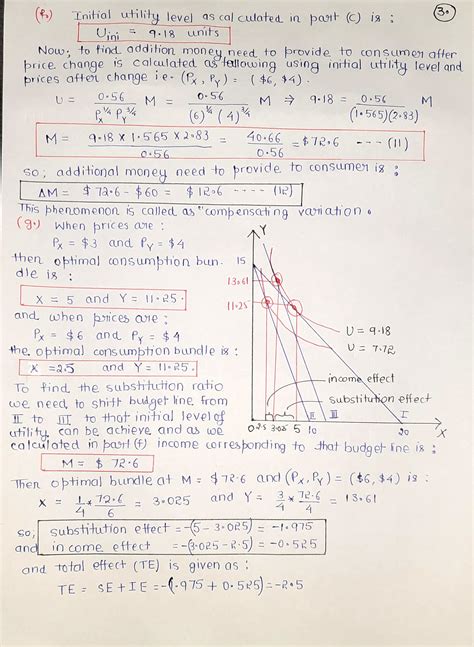 (f.) Initial utility level as calculated in part (c) is :
3.
Uini = 9.18 units
Now, to find addition money need to provide to consumer after
price change is calculated as following using initial utility level and
prices after change i.e. (Px , Py) = ( $6, $4).
U = 0.56 / Px^1/4 Py^3/4 M = 0.56 / (6)^1/4 (4)^3/4 M ⇒ 9.18 = 0.56 / (1.565)(2.83) M
M = 9.18 x 1.565 x 2.83 / 0.56 = 40.66 / 0.56 = $72.6 --- (11)
so, additional money need to provide to consumer is :
ΔM = $ 72.6 - $60 = $ 12.6 ---- (12)
This phenomenon is called as "compensating variation.
(g.) When prices are :
Px = $3 and Py = $4
then optimal consumption bun-
dle is :
X = 5 and Y = 11.25.
and when prices are :
Px = $6 and Py = $4
the optimal consumption bundle is :
X = 2.5 and Y = 11.25.
To find the substitution ratio
we need to shift budget line from
II to III to that initial level of
utility can be achieve and as we
calculated in part (f) income corresponding to that budget line is :
Y
15
13.61
11.25
U = 9.18
U = 7.72
income effect
substitution effect
0 2.5 3.02 5 10 II III 20 I X
M = $ 72.6
Then optimal bundle at M = $ 72.6 and (Px, Py) = ($6, $4) is :
X = 1/4 * 72.6/6 = 3.025 and Y = 3/4 * 72.6/4 = 13.61
so, substitution effect = -(5 - 3.025) = -1.975
and income effect = -(3.025 - 2.5) = -0.525
and total effect (TE) is given as :
TE = SE + IE = -(1.975 + 0.525) = -2.5